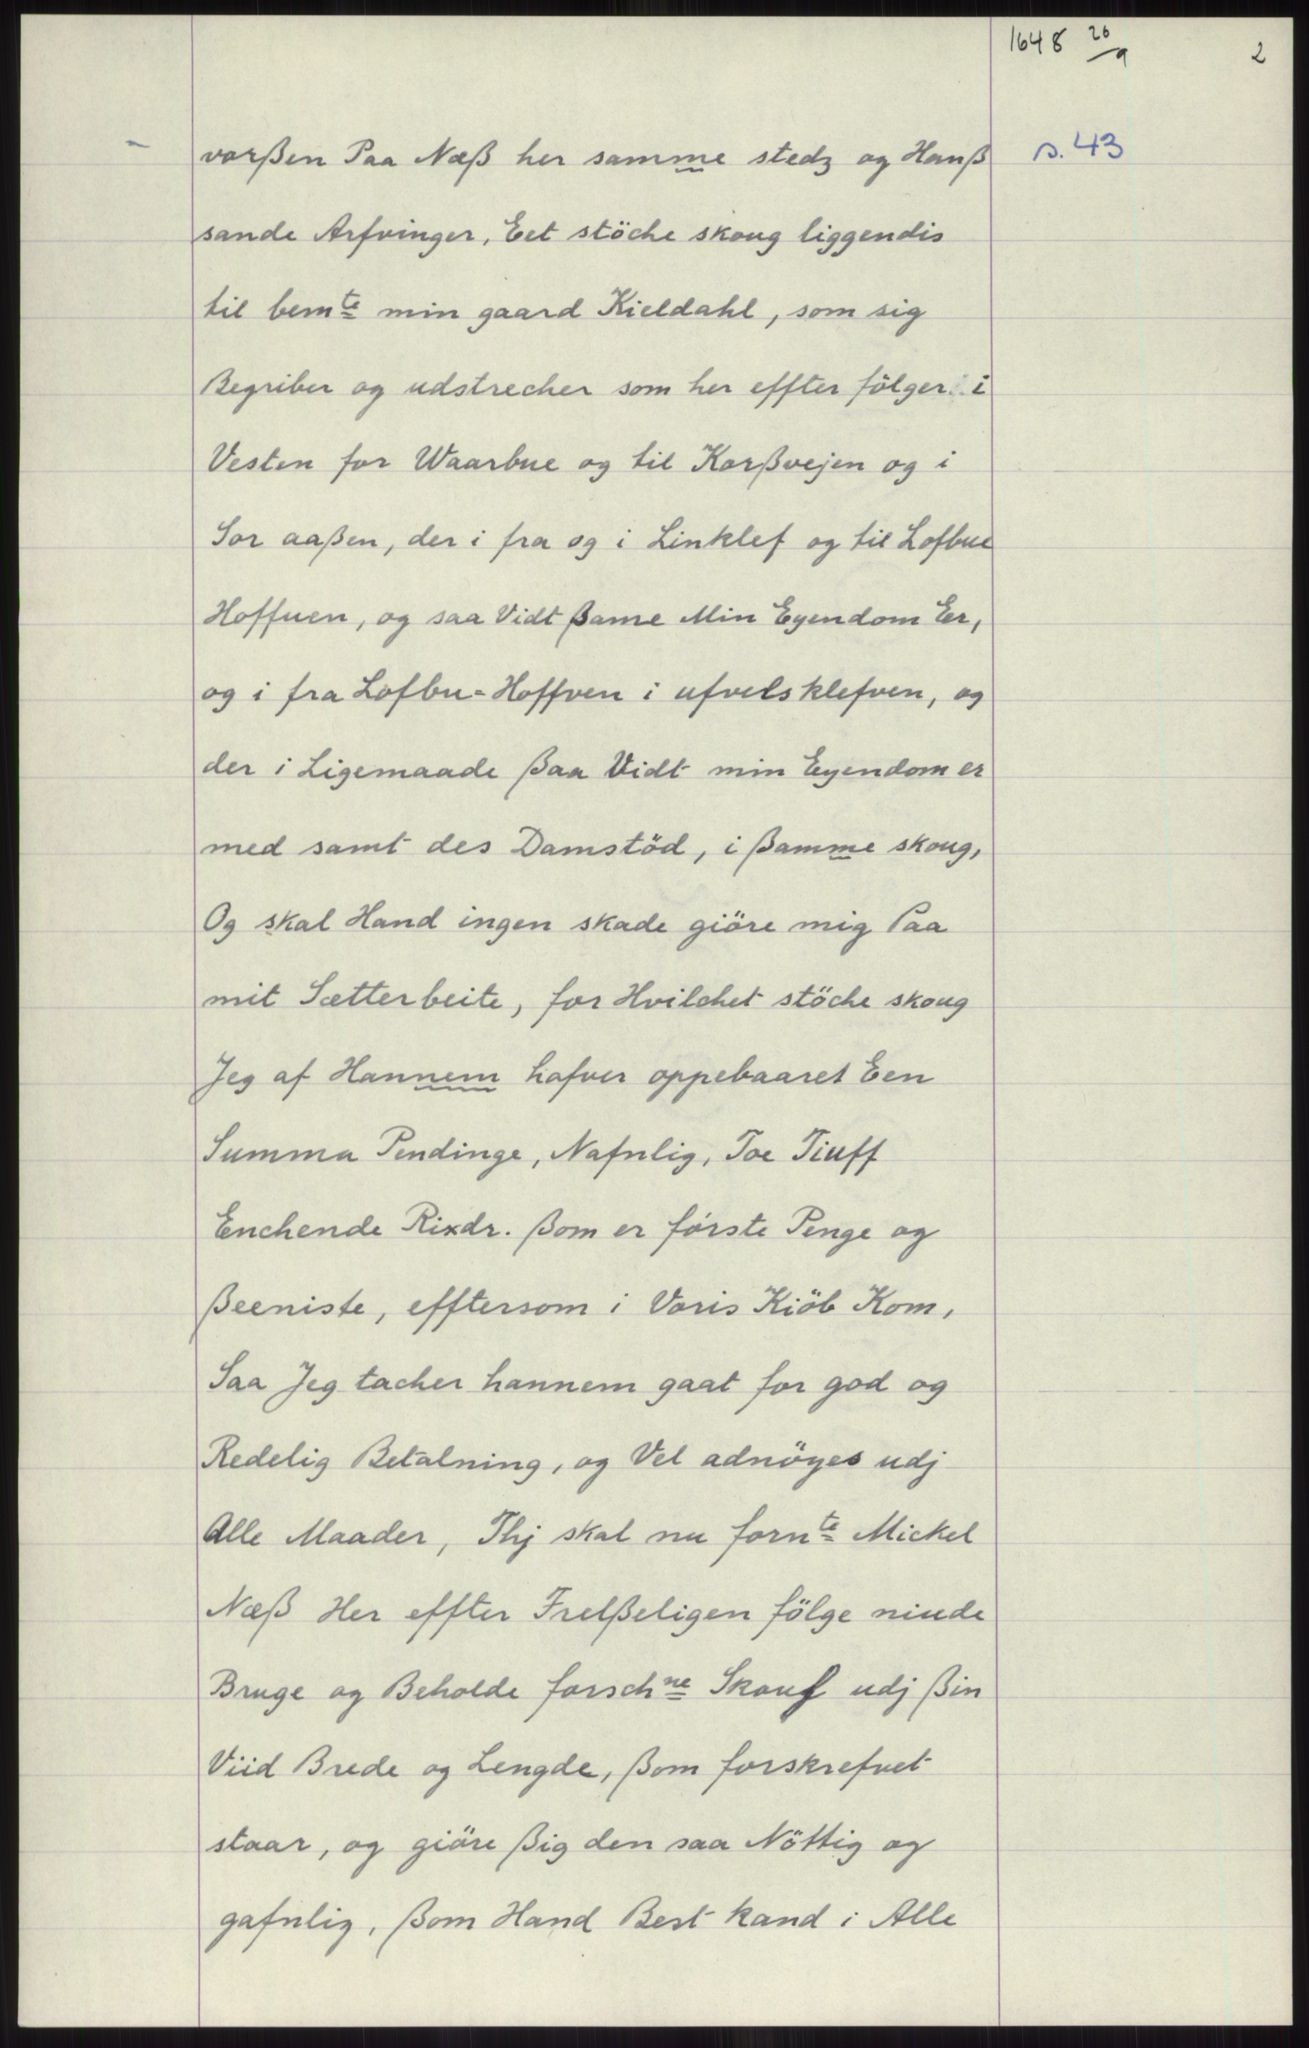 1648 26/9
2
vorßen Paa Næß her samme stedz og Hanß
s. 43
sande Arfvinger, Eet stöche skoug liggendis
til bemte min gaard Kieldahl, som sig
Begriber og udstrecher som her effter fölger i
Vesten for Waarbue og til Korßvejen og i
Sor aaßen, der i fra og i Linklef og til Lofbue
Hoffuen, og saa Vidt ßame Min Eyendom Er,
og i fra Lofbu-Hoffven i ufvelsklefven, og
der i Ligemaade ßaa Vidt min Eyendom er
med samt des Damstöd, i ßamme skoug,
Og skal Hand ingen skade giöre mig Paa
mit Sætterbeite, for Hvilchet stöche skoug
Jeg af Hannem hafver oppebaaret Een
Summa Pendinge, Nafnlig, Toe Tiuff
Enchende Rixdr. ßom er förste Penge og
ßeeniste, efftersom i Voris Kiöb Kom,
Saa Jeg tacher hannem gaat for god og
Redelig Betalning, og Vel adnöyes udj
Alle Maader, Thj skal nu fornte Mickel
Næß Her effter Frelßeligen fölge niude
Bruge og Beholde forschne Skouf udj ßin
Viid Brede og Lengde, ßom forskrefvet
staar, og giöre ßig den saa Nöttig og
gafnlig, ßom Hand Best kand i Alle